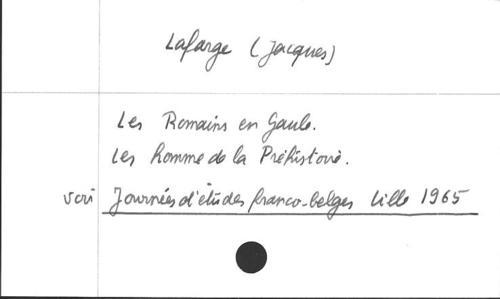 Lafarge (Jacques)
Les Romains en Gaule.
Les homme de la Préhistoire.
voir Journées d'études franco-belges Lille 1965